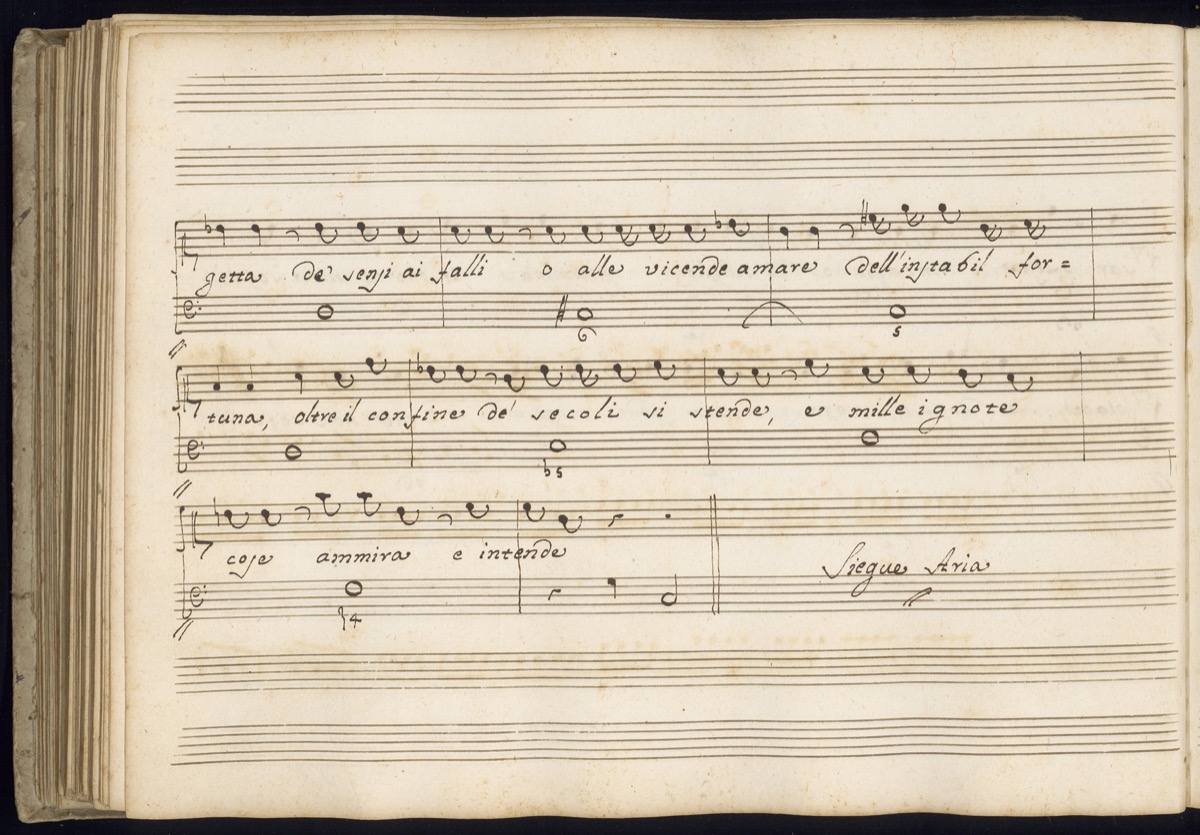 getta de' sensi ai falli o alle vicende amare dell'instabil for=
6 5
tuna, oltre il confine de' secoli si stende, e mille ignote
b5
cose ammira e intende
Siegue Aria
♮4